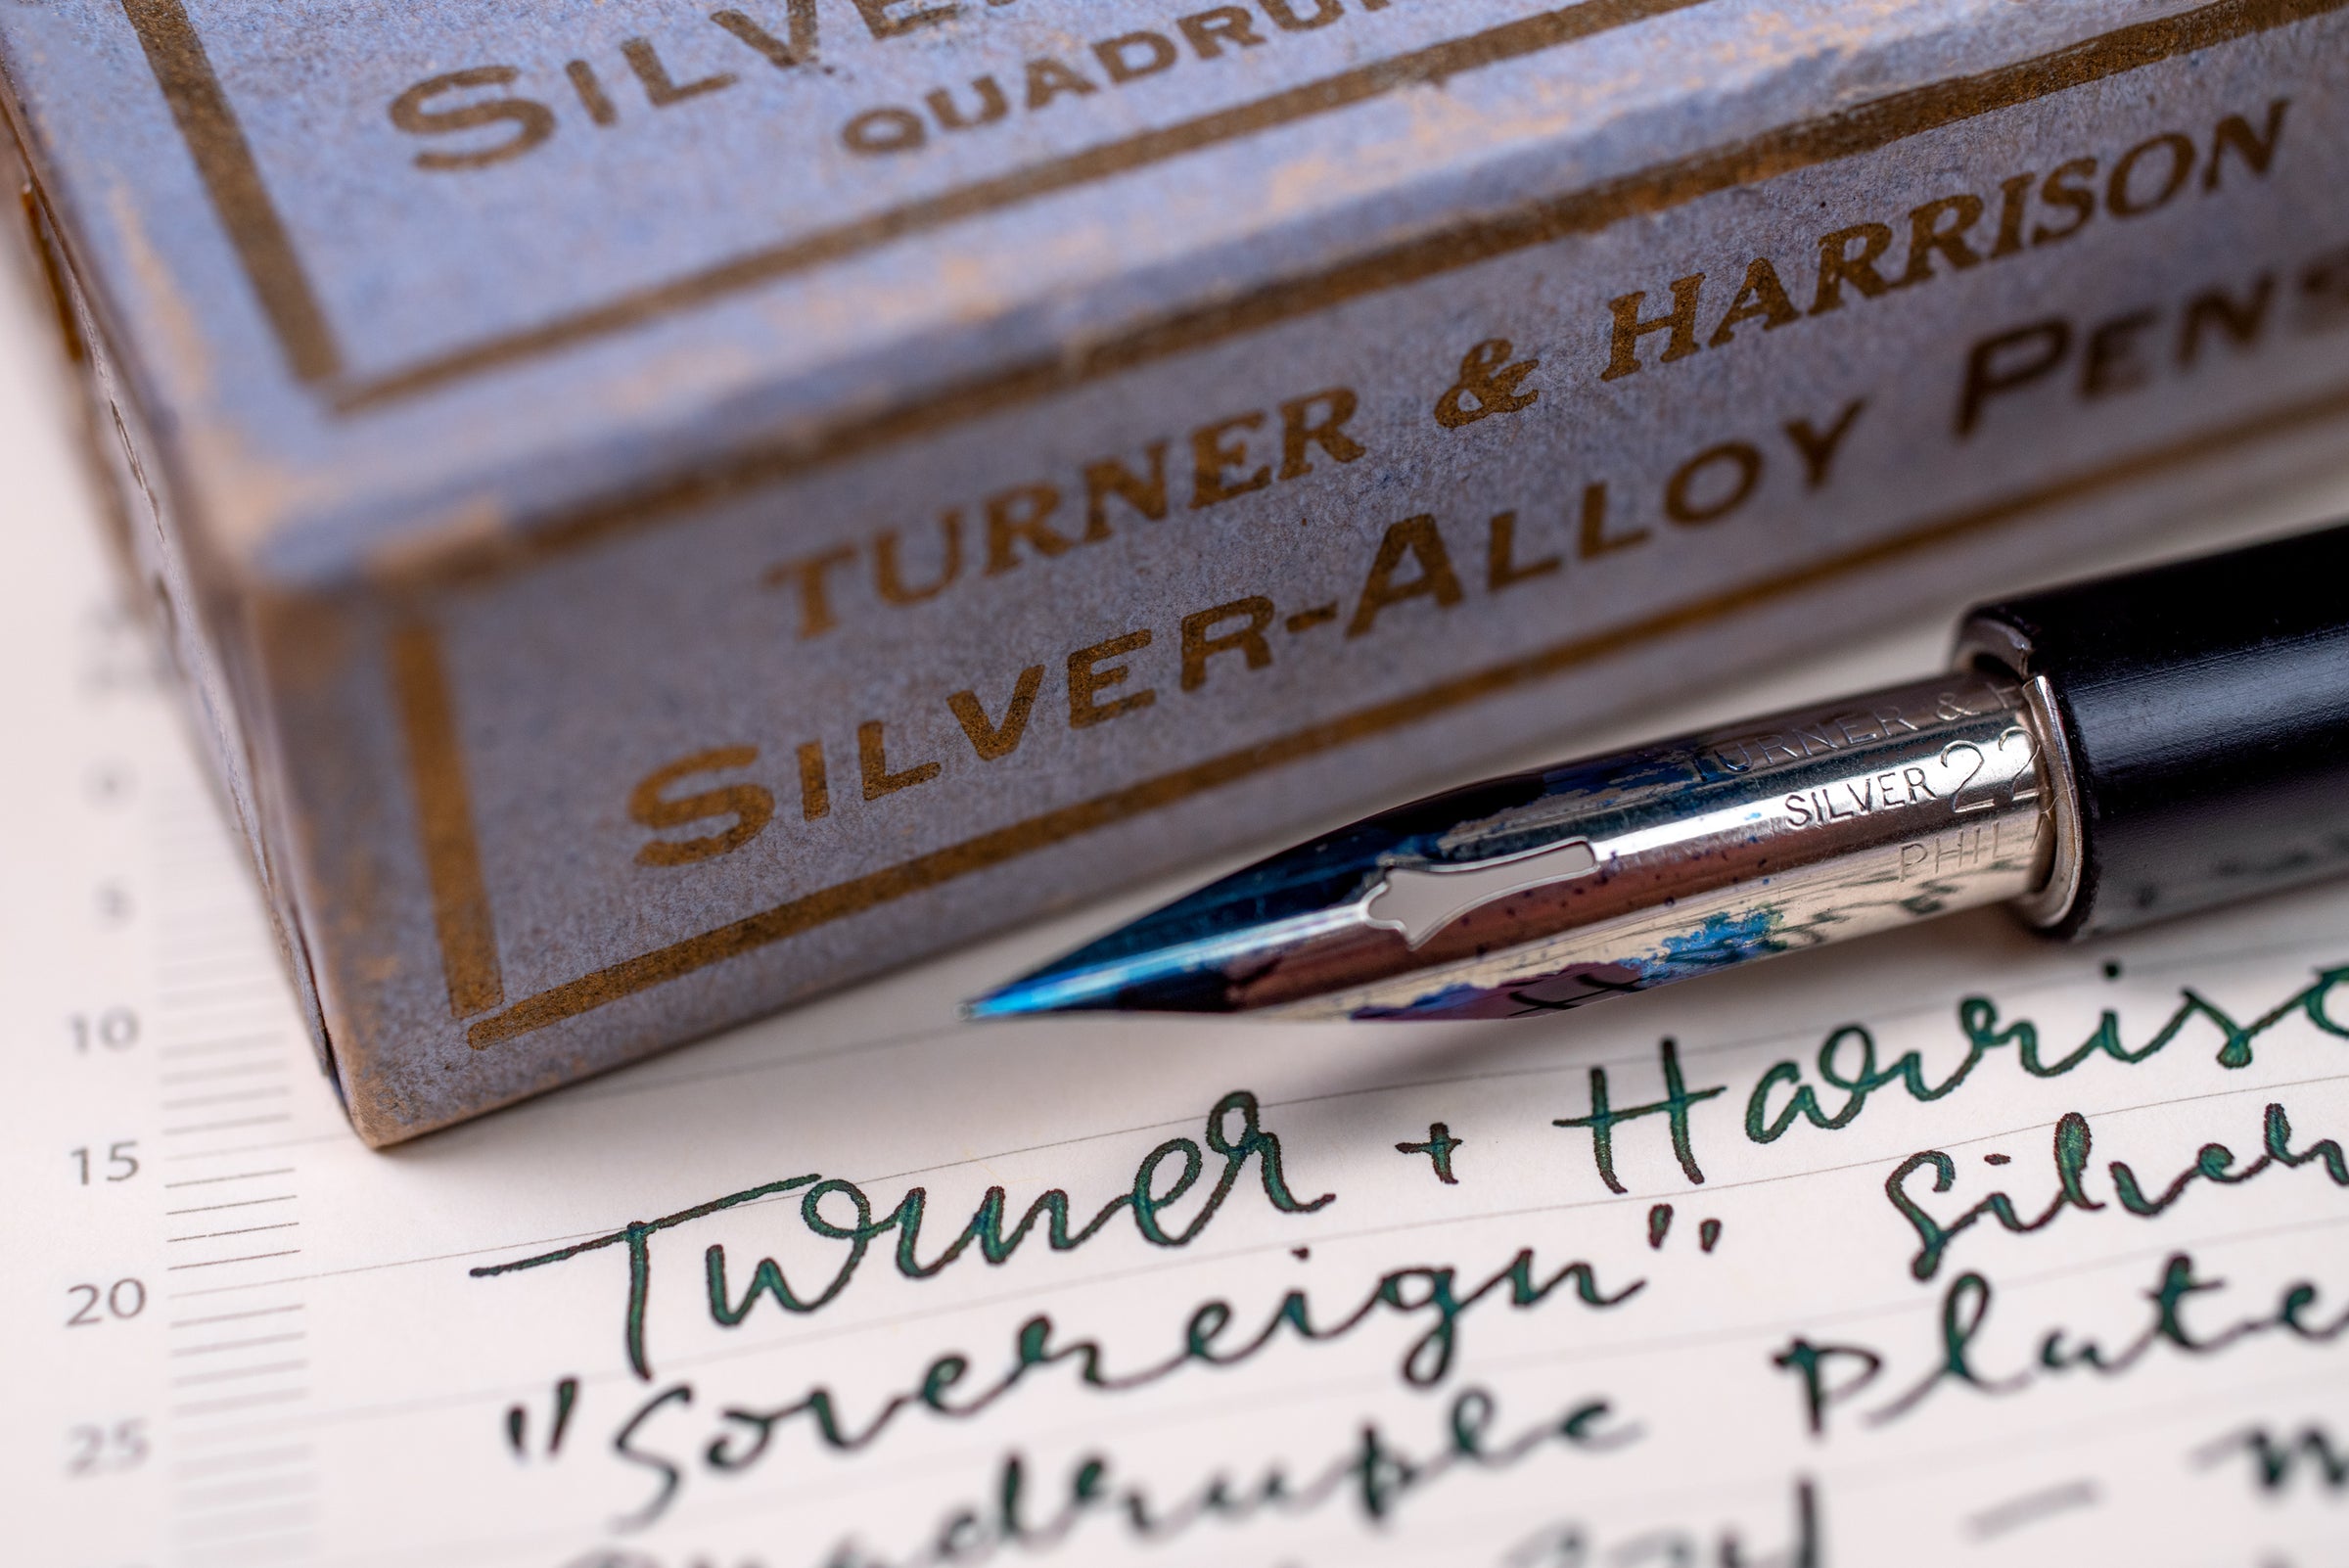 SILVER
QUADRU
TURNER & HARRISON
SILVER-ALLOY PENS
TURNER & H
SILVER 22
PHIL
10
15
20
25
Turner + Harriso
"Sovereign" Silver
Quadruple Plate